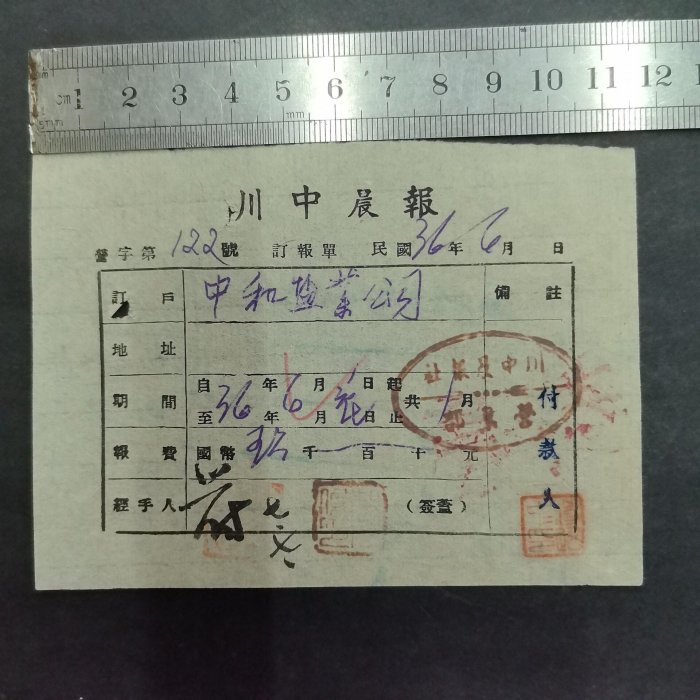 cm 1 2 3 4 5 6 7 8 9 10 11 12
mm mm
川中晨報
營字第122號 訂報單 民國36年6月 日
訂戶 中和盐業公司 備註
地址
期間 自36年6月1日起 至 年6月底日止 共1月
報費 國幣玖千 百 十 元
經手人 (簽蓋)
川中晨報社
營業部
付款人